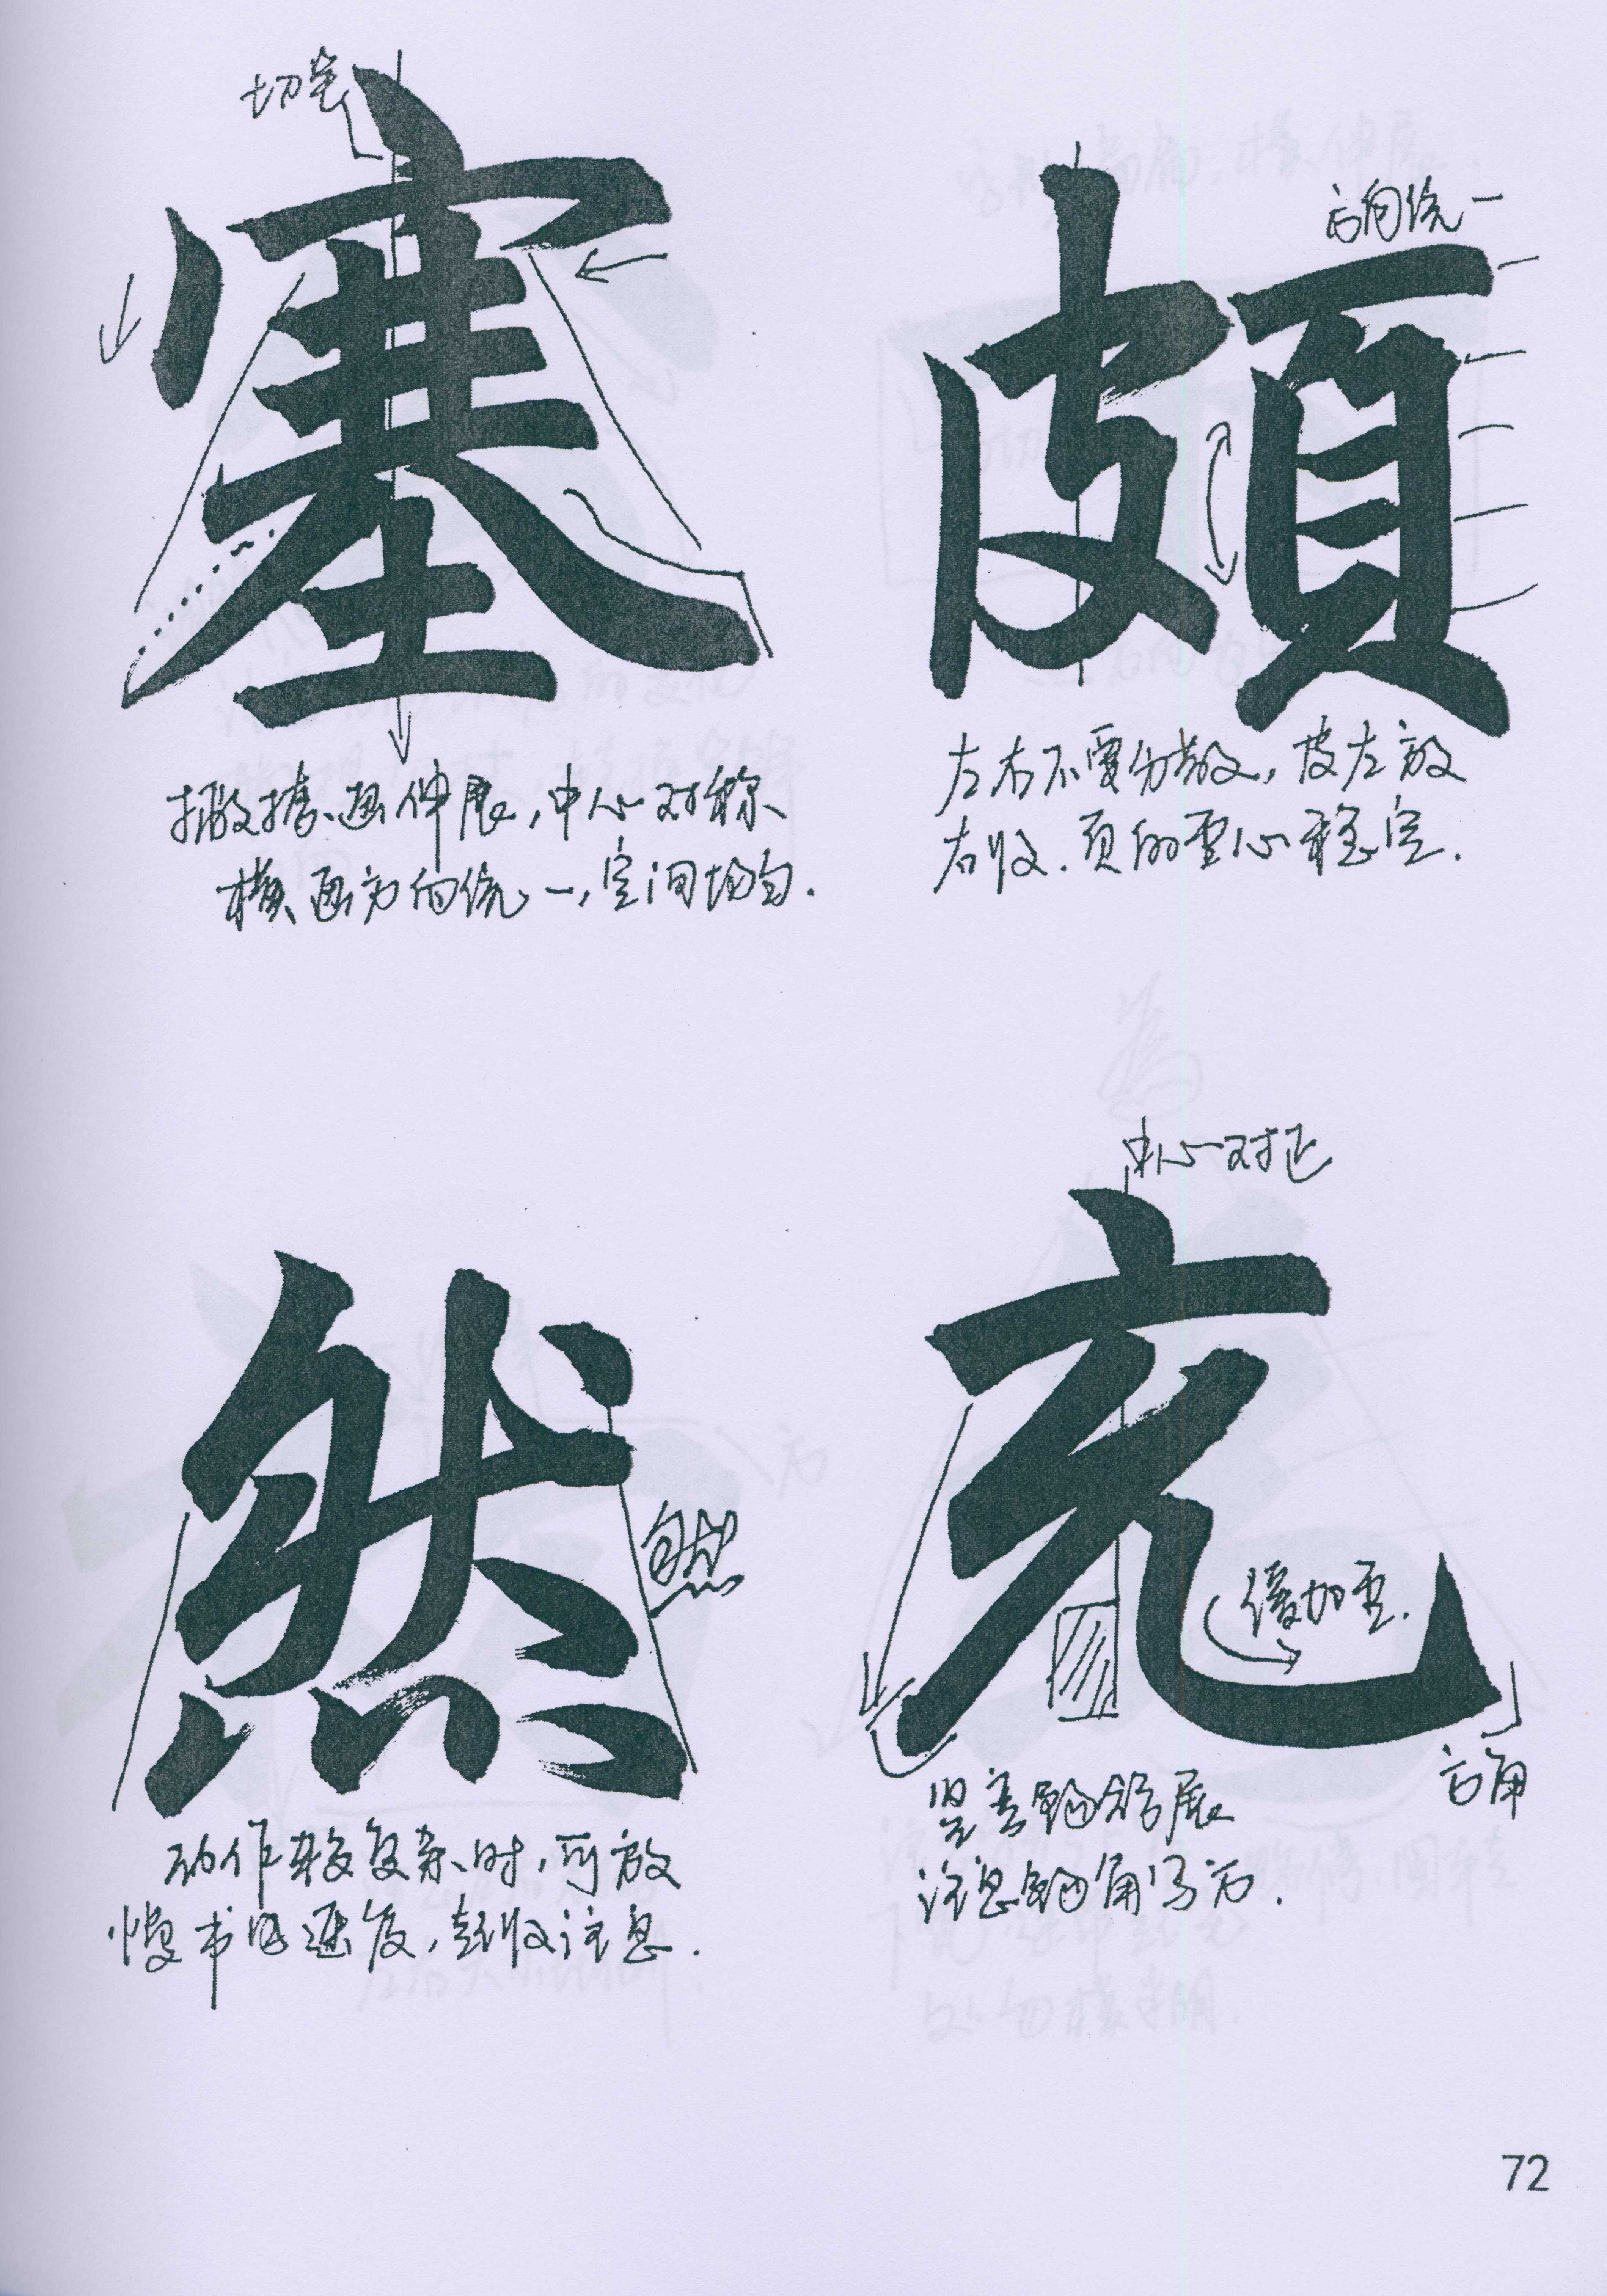 切笔
塞
撇捺画伸展,中心对称、
横画方向统一,空间均匀.
方向统一
頗
左右不要分散,皮左放
右收.页的重心稳定.
然
自然
动作较复杂时,可放
慢书写速度,起收注意.
中心对正
充
缓加重.
方角
竖弯钩舒展
注意钩角写方.
72